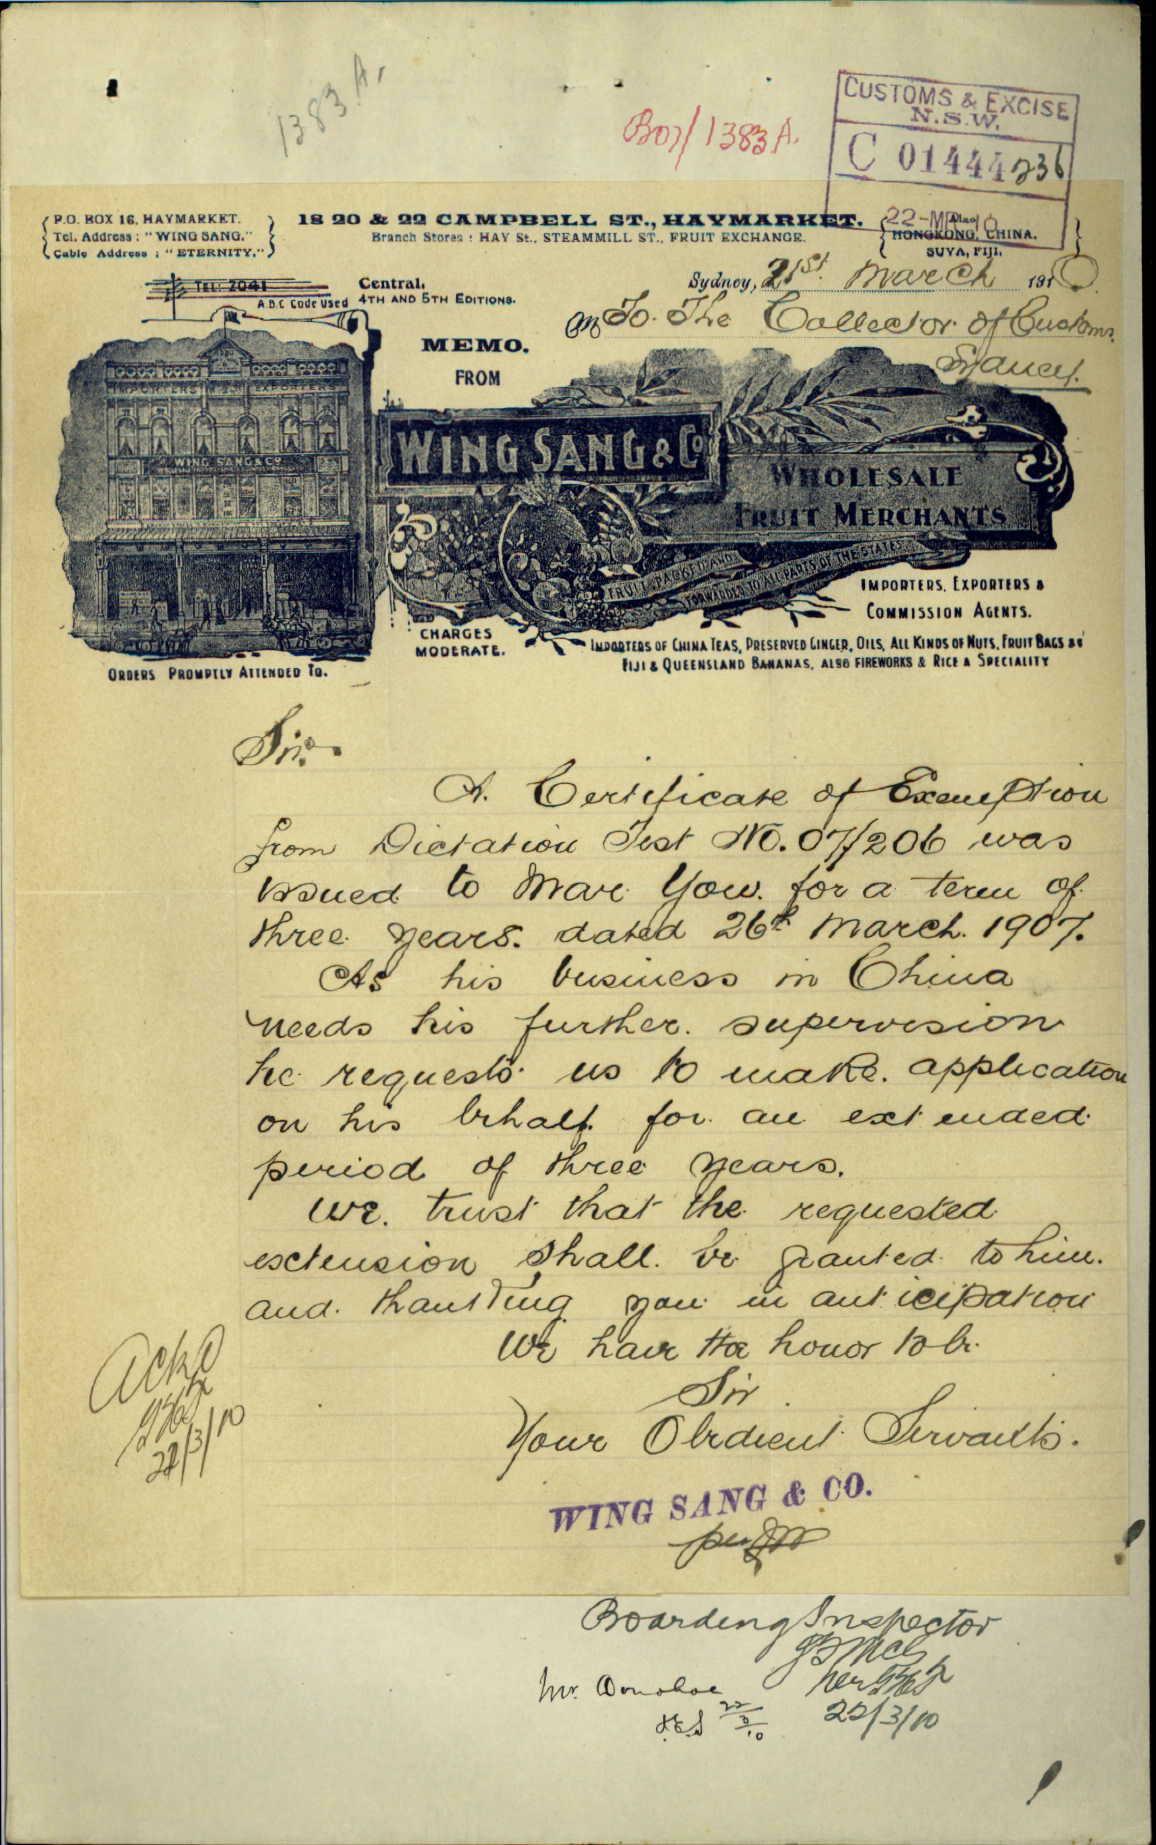 1383 A.
Bo7/1383A.
CUSTOMS & EXCISE
N.S.W.
C 01444 236
22-MR10
P.O. BOX 16, HAYMARKET.
Tel. Address: "WING SANG."
Cable Address: "ETERNITY."
18 20 & 22 CAMPBELL ST., HAYMARKET.
Branch Stores: HAY St., STEAMMILL ST., FRUIT EXCHANGE.
Also
HONGKONG, CHINA.
SUVA, FIJI.
TEL: 2041
Central.
A.B.C Code Used 4TH AND 5TH EDITIONS.
Sydney, 21st March 1910.
M To The Collector of Customs.
Sydney.
MEMO.
FROM
IMPORTERS EXPORTERS
WING SANG & Co
WING SANG & Co
WHOLESALE
FRUIT MERCHANTS
FRUIT PACKED AND
FORWARDED TO ALL PARTS OF THE STATES
IMPORTERS, EXPORTERS &
COMMISSION AGENTS.
CHARGES
MODERATE.
IMPORTERS OF CHINA TEAS, PRESERVED GINGER, OILS, ALL KINDS OF NUTS, FRUIT BAGS &c
FIJI & QUEENSLAND BANANAS, ALSO FIREWORKS & RICE A SPECIALITY
ORDERS PROMPTLY ATTENDED TO.
Sir.
A. Certificate of Exemption
from Dictation Test No. 07/206 was
issued to Mar You. for a term of
three years. dated 26th March. 1907.
As his business in China
needs his further. supervision
he requests us to make. application
on his behalf. for an extended
period of three years.
We. trust that the requested
extension shall. be granted to him.
and. thanking you in anticipation
We have the honor to be.
Sir
Your Obedient Servants.
WING SANG & CO.
per
Ackd
22/3/10
Boarding Inspector
per
22/3/10
Mr. Donohoe
22/3/10